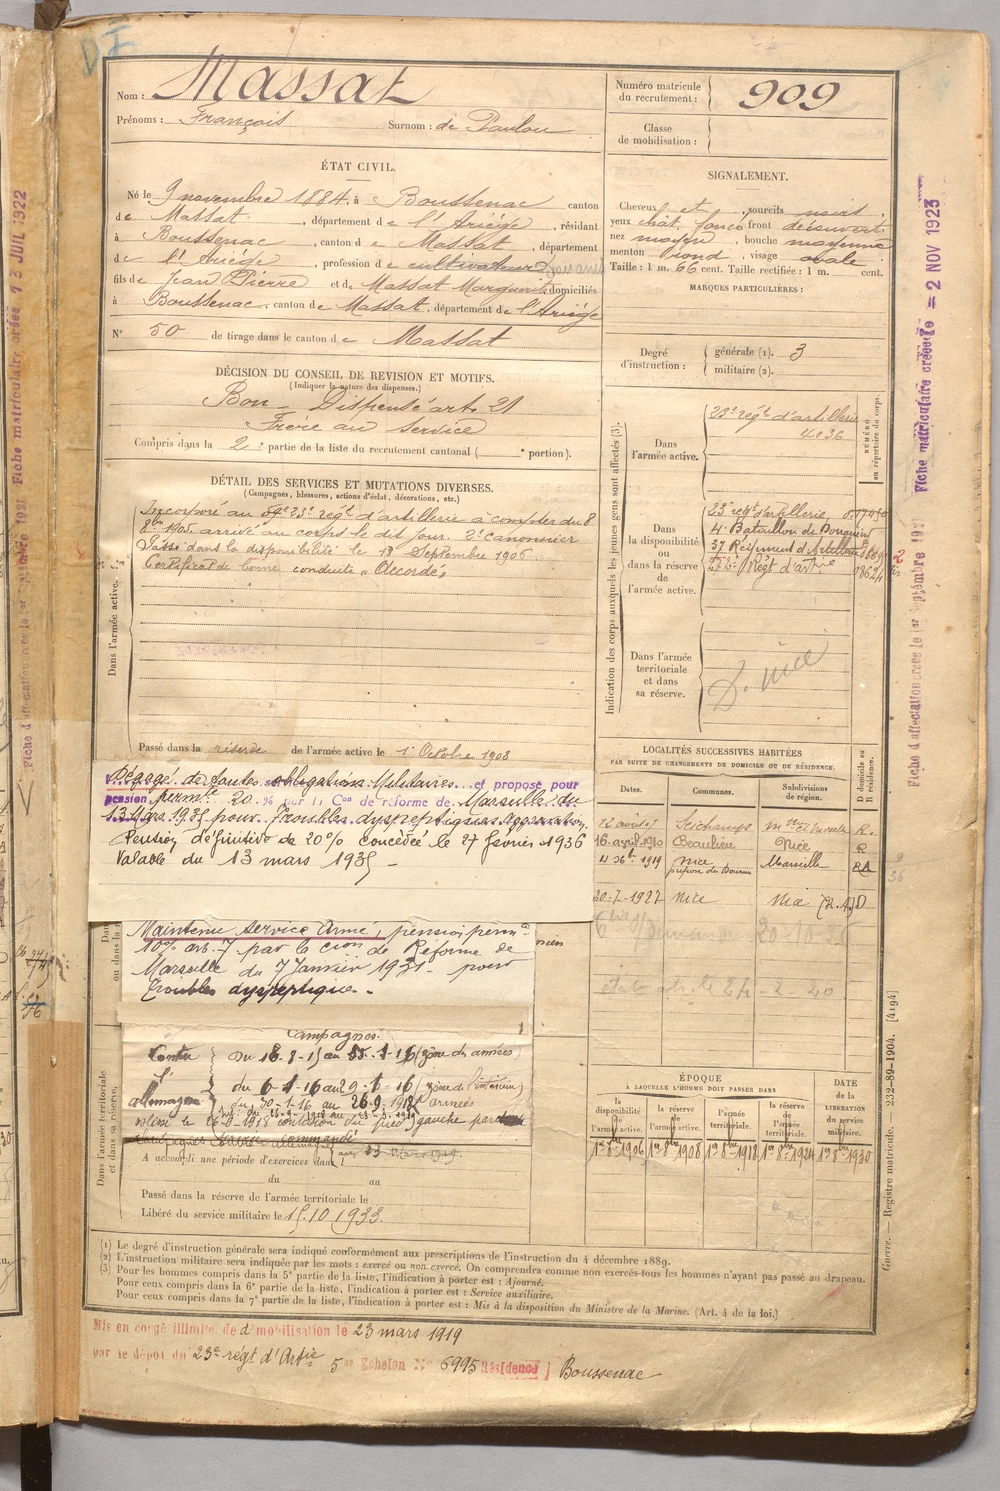 D I
Nom : Massat
Prénoms : François Surnom : de Paulou
ÉTAT CIVIL.
Né le 9 novembre 1884, à Boussenac canton
de Massat, département de l'Ariège, résidant
à Boussenac, canton de Massat, département
de l'Ariège, profession de cultivateur
fils de Jean Pierre et de Massat Marguerite domiciliés
à Boussenac, canton de Massat, département de l'Ariège
N° 50 de tirage dans le canton de Massat
DÉCISION DU CONSEIL DE REVISION ET MOTIFS.
(Indiquer la nature des dispenses.)
Bon - Dispensé art. 21
Frère au service
Compris dans la 2e partie de la liste du recrutement cantonal ( e portion).
DÉTAIL DES SERVICES ET MUTATIONS DIVERSES.
(Campagnes, blessures, actions d'éclat, décorations, etc.)
Dans l'armée active.
Incorporé au 23e régt d'artillerie à compter du 8
8bre 1905, arrivé au corps le dit jour. 2e canonnier
Passé dans la disponibilité le 18 Septembre 1906
Certificat de bonne conduite "Accordé"
Passé dans la réserve de l'armée active le 1er Octobre 1908
Dégagé de toutes obligations Militaires et proposé pour
pension permte 20 % par la Con de réforme de Marseille du
13 Mars 1935 pour Troubles dyspeptiques Aggravation.
Pension définitive de 20% concédée le 27 février 1936
Valable du 13 mars 1935 -
Maintenu Service Armé, pension permte
10% art. 7 par la cion de Réforme de
Marseille du 7 Janvier 1931 - pour
troubles dyspeptique. -
Campagnes.
Contre l'allemagne
Du 18-8-15 au 5-1-16 (zône des armées)
du 6-1-16 au 29-1-16 (zône de l'intérieur)
du 30-1-16 au 26.9.1918 armées
blessé le 26-9-1918 contusion du pied gauche
Dans l'armée territoriale et dans sa réserve.
A accompli une période d'exercices dans
du au
Passé dans la réserve de l'armée territoriale le
Libéré du service militaire le 15.10.1933.
Numéro matricule du recrutement : 909
Classe de mobilisation :
SIGNALEMENT.
Cheveux et sourcils noirs
yeux chât. foncé front découvert
nez moyen, bouche moyenne
menton rond, visage ovale
Taille : 1 m. 66 cent. Taille rectifiée : 1 m. cent.
MARQUES PARTICULIÈRES :
Degré d'instruction :
générale (1). 3
militaire (2).
Indication des corps auxquels les jeunes gens sont affectés (3).
NUMÉRO au répertoire du corps.
Dans l'armée active.
23e régt d'artillerie
4036
Dans la disponibilité ou dans la réserve de l'armée active.
23e régt d'artillerie,
4e Bataillon de Douaniers
37 Régiment d'Artillerie
Régt d'artie
Dans l'armée territoriale et dans sa réserve.
D. Nice
LOCALITÉS SUCCESSIVES HABITÉES
PAR SUITE DE CHANGEMENTS DE DOMICILE OU DE RÉSIDENCE.
Dates. Communes. Subdivisions de région. D domicile ou R résidence.
Seichamps R.
16 avril 1910 Beaulieu Nice R
11 1919 Nice Marseille RA
20-7-1927 Nice Nice D
ÉPOQUE
À LAQUELLE L'HOMME DOIT PASSER DANS
la disponibilité de l'armée active. la réserve de l'armée active. l'armée territoriale. la réserve de l'armée territoriale. DATE de la LIBÉRATION du service militaire.
1er 8bre 1906 1er 8bre 1908 1er 8bre 1918 1er 8bre 1924 1er 8bre 1930
(1) Le degré d'instruction générale sera indiqué conformément aux prescriptions de l'instruction du 4 décembre 1889.
(2) L'instruction militaire sera indiquée par les mots : exercé ou non exercé. On comprendra comme non exercés tous les hommes n'ayant pas passé au drapeau.
(3) Pour les hommes compris dans la 5e partie de la liste, l'indication à porter est : Ajourné.
Pour ceux compris dans la 6e partie de la liste, l'indication à porter est : Service auxiliaire.
Pour ceux compris dans la 7e partie de la liste, l'indication à porter est : Mis à la disposition du Ministre de la Marine. (Art. 4 de la loi.)
Mis en congé illimité de démobilisation le 23 mars 1919
par le dépôt du 23e régt d'Artie 5me Echelon N° 6995 Résidence Boussenac
Guerre. — Registre matricule. — 232-89-1904. [4194]
Fiche matriculaire créée le = 2 NOV 1923
Fiche d'affectation créée le 1er Septembre 19
Fiche matriculaire créée 13 JUIL 1922